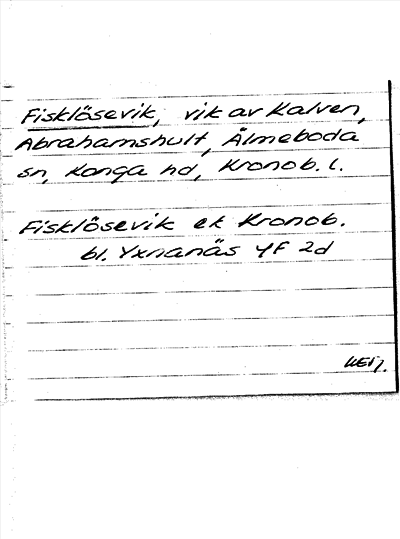 Fisklösevik, vik av Kalven,
Abrahamshult, Älmeboda
sn, Konga hd, Kronob. l.
Fisklösevik ek Kronob.
bl. Yxnanäs 4F 2d